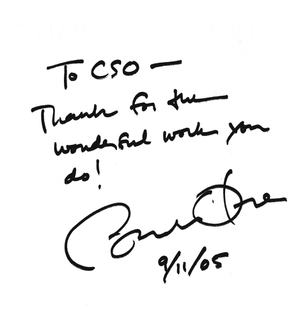 To CSO —
Thanks for the
wonderful work you
do!
9/11/05